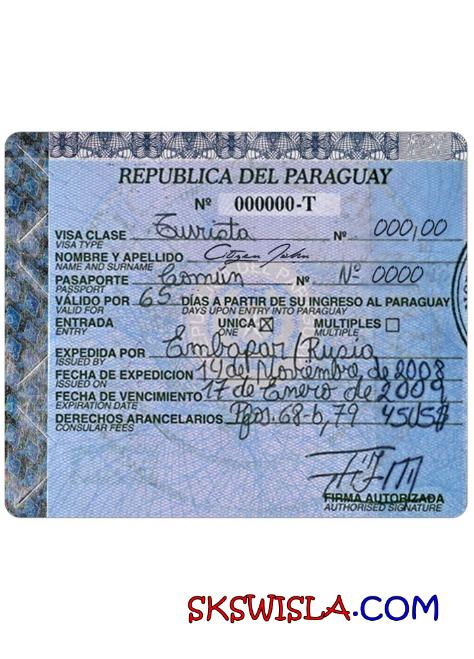 REPUBLICA DEL PARAGUAY
Nº 000000-T
VISA CLASE Turista Nº 000,00
VISA TYPE
NOMBRE Y APELLIDO Citizen John
NAME AND SURNAME
PASAPORTE Común Nº Nº 0000
PASSPORT
VÁLIDO POR 65 DÍAS A PARTIR DE SU INGRESO AL PARAGUAY
VALID FOR DAYS UPON ENTRY INTO PARAGUAY
ENTRADA UNICA ☒ MULTIPLES ☐
ENTRY ONE MULTIPLE
EXPEDIDA POR Embapar/Rusia
ISSUED BY
FECHA DE EXPEDICION 14 de Noviembre de 2008
ISSUED ON
FECHA DE VENCIMIENTO 17 de Enero de 2009
EXPIRATION DATE
DERECHOS ARANCELARIOS 68-b,79 45US$
CONSULAR FEES
FIRMA AUTORIZADA
AUTHORISED SIGNATURE
SKSWISLA.COM